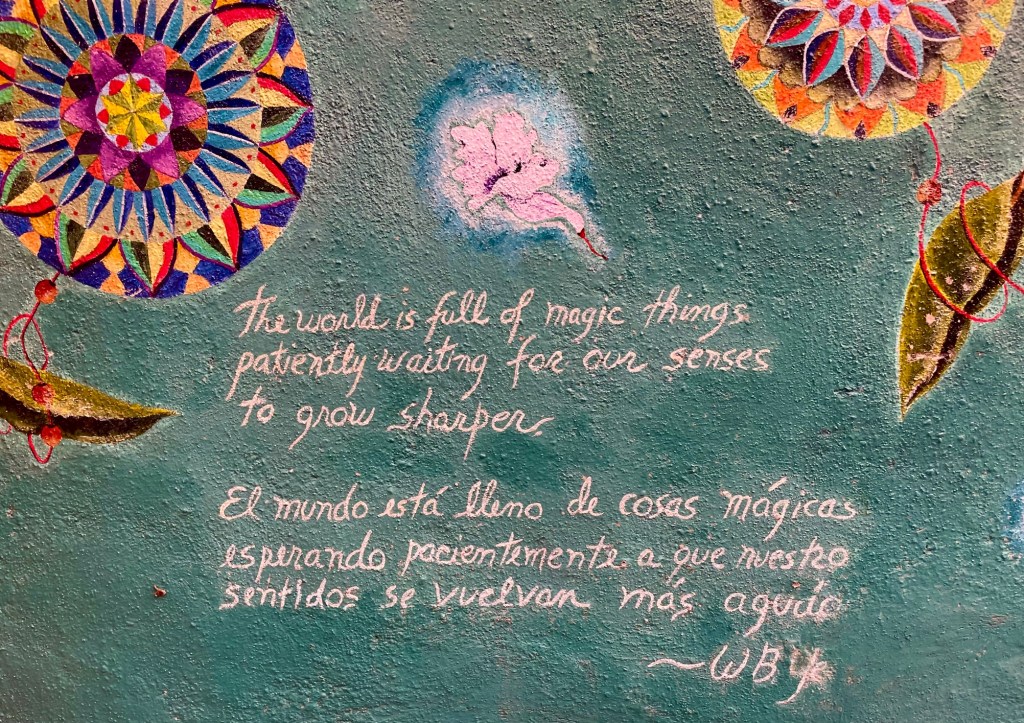 The world is full of magic things
patiently waiting for our senses
to grow sharper.
El mundo está lleno de cosas mágicas
esperando pacientemente a que nuestro
sentidos se vuelvan más agudo
~WB